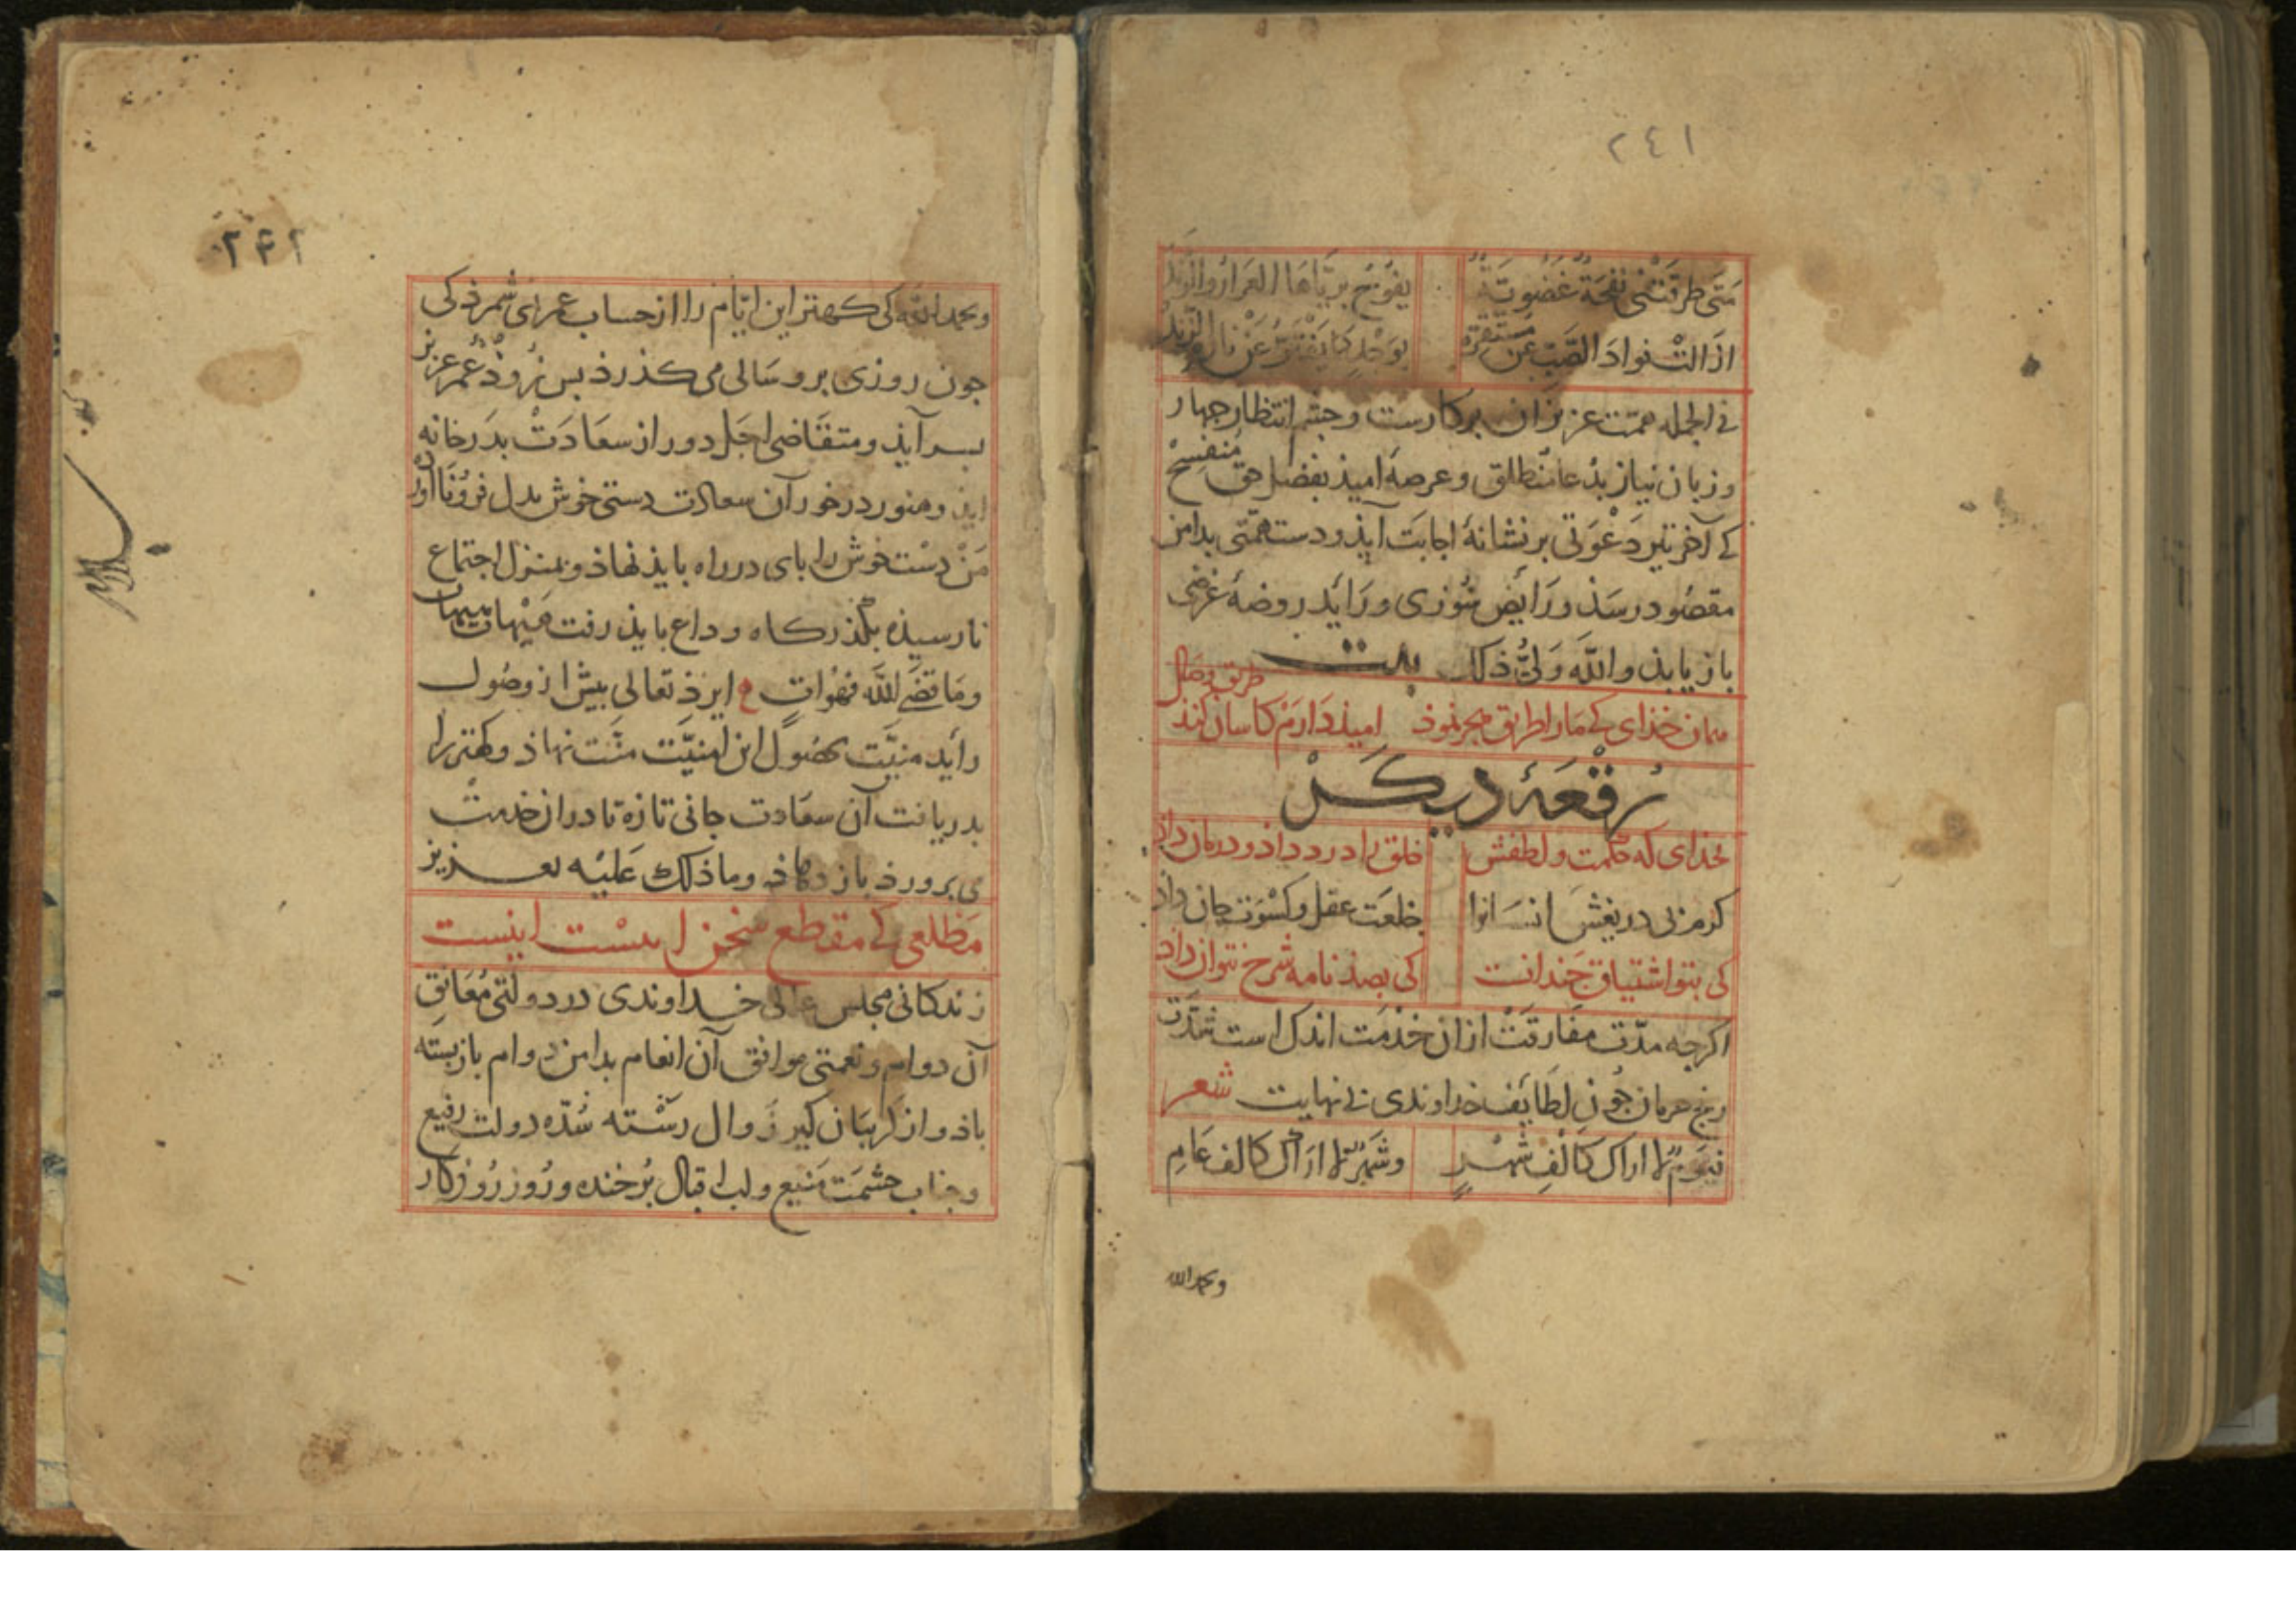 ٢٤١
متی طرقتنی نفحة غضویّة یفوح بریّاها العرار والرند
اذا التْ فواد الصَّبّ عن مستقرّه بوجد کما یفترّ عن ناره الزند
فی الجمله همّت عزیزان برکارست و چشم انتظار چهار
و زبان نیاز بدُعا منطلق و عرصهٔ امیذ بفضل حق منفسح
کے آخر تیر دَعْوَتی بر نشانهٔ اجابَت آیذ و دست همّتی بدامن
مقصُود در رسَذ و رَایض شوزی و رَایدِ روضهٔ غرضی
باز یابذ و اللّه وَلیُّ ذلک بیت
همان خذای کے مَارا طریق هجر نموذ امیذ دَارَمْ کاسان کنذ طریق وصَال
رُقْعَهٔ دیکَرْ
بخذای که حکمت و لطفش خلق را درد داذ و درمان داذ
کرم بی دریغش انسَانرا خلعَت عقل و کسْوَت جان داذ
کی بتو اشتیاق جَندانت کی بصذ نامه شرح نتوان داذ
اکرچه مدّت مفَارقَتْ ازان خذمَت اندک است شدّت
رنج حرمان جُون لطَایف خداوندی بی نهایت شعر
فیَومٌ لا اراک کَاَلْفِ شَهْرٍ وشَهْرٌ لا ارَاک کالف عَامِ
وبحمد الله
٢۴٢
وبحمد اللّه کی کهتر این ایّام را از حساب عمر نمی شمرذ کی
جون روزی برو سَالی می کذرذ بس زُوذْ عُمر عزیز
بسر آیذ و متقَاضی اجَل دور از سعَادَتْ بدَر خانه
آیذ و هنوز در خور آن سعادت دستی خوش بدل فرُونا آورْد
مَنْ دسْت خوش را بای در راه بایذ نهاذ و بمنزل اجتماع
نارسیذه بگذرکاه وداع بایذ رفت هَیْهات هَیْهات
ومَا قضَے اللّه فهُوَ اتٍ ع ایزذ تعالی بیش از وصُول
رایدِ منیَّت بحصُولِ این اُمنیَّت منَّت نهاذ و کهتر را
بدریافت آن سعَادت جانی تازه تا در ان خذمتْ
می برورذ باز دهاذ وما ذلک عَلیْه بعزیز
مَطلعی کے مقطع سخن است اینست
زندکانی مجلس عالی خداوندی در دولتی مُعَانِقِ
آن دوام و نعمتی موافق آن انعام بدامن دوام بازبسته
باذ و از کریبَان کیر زَوال رَسْته سُدّه دولت رفیع
وجناب حشمَت مَنیع و لب اقبال بُرخنده و رُوز رُوزکار